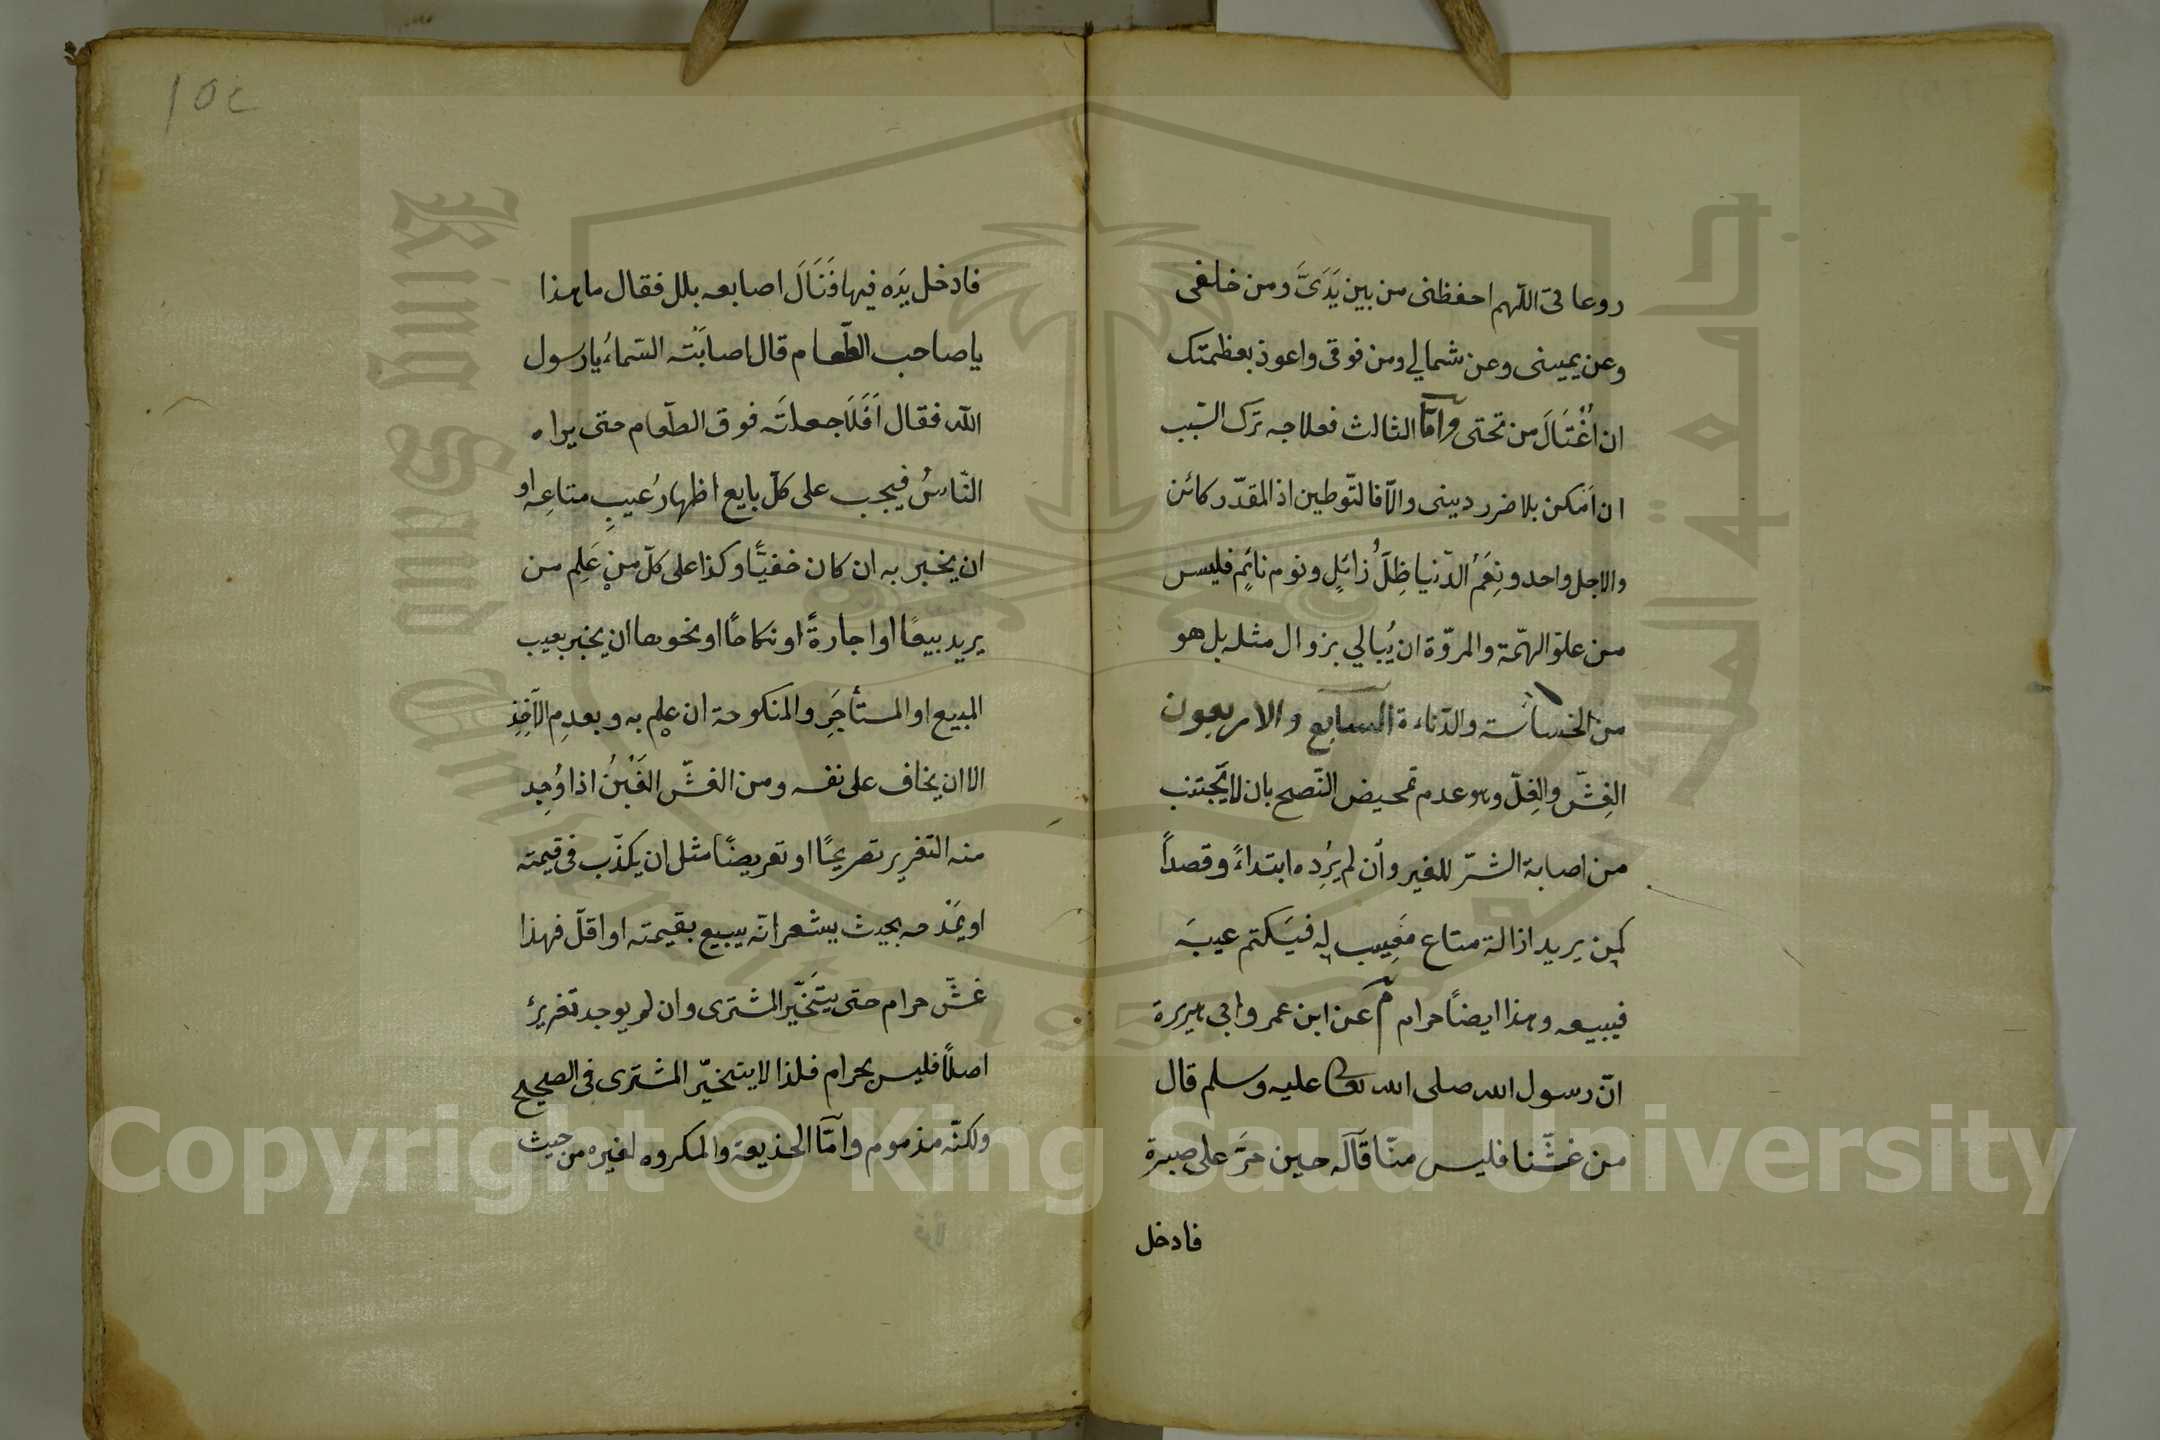 روعاتى اللهم احفظنى من بين يَدَىَّ ومن خلفى
وعن يمينى وعن شمالي ومن فوقى واعوذ بعظمتك
ان اُغْتَالَ من تحتى وامّا الثالث فعلاجه ترك السّبب
ان اَمْكن بلا ضرر دينى والّا فالتّوطين اذ المقدّر كائن
والاجل واحد ونِعَمُ الدّنيا ظِلٌّ زائلٍ ونوم نائمٍ فليس
من علوّ الهمّة والمروّة ان يُبالي بزوال مثله بل هو
من الخساسة والدّناءة السابع والاربعون
الغِشّ والغِلّ وهو عدم تمحيض النّصح بان لا يَجتنب
من اصابة الشرّ للغير وأن لم يُرِده ابتداءً وقصداً
كمن يريد ازالة متاع مَعِيب له فيَكتم عيبَه
فيبيعه وهذا ايضاً حرام م عن ابن عمر وابى هريرة
انّ رسول الله صلى الله تعالى عليه وسلم قال
من غشّنا فليس منّا قآله حين مَرَّ على صبرة
فادخل
١٥٤
فادخل يَدَه فيها فَنَالَ اصابعه بلل فقال ما هذا
يا صاحب الطّعام قال اصابَتْه السّماءُ يا رسول
الله فقال اَفَلَا جعلتَه فوق الطّعام حتى يراه
النّاسُ فيجب على كلّ بايع اظهارُ عيبِ متاعِه او
ان يخبر به ان كان خفيًّا وكذا على كلّ منْ عَلِم من
يريد بيعًا او اجارةً او نكاحًا او نحوها ان يخبر بعيب
المبيع او المستأجَرِ والمنكوحة ان علِم به وبعدمِ الآخِذِ
الا ان يخاف على نفسه ومن الغشّ الغَبْنُ اذا وُجِد
منه التغرير تصريحًا او تعريضًا مثل ان يكذّب فى قيمته
او يَمْدحه بحيث يشعر انّه يبيع بقيمته او اقلّ فهذا
غشّ حرام حتى يتَخَيّر المشترى وان لم يوجد تغريرٌ
اصلًا فليس بحرام فلذا لا يتخيّر المشترى فى الصحيح
ولكنّه مذموم وامّا الخذيعة والمكروه لغيره من حيث
Copyright © King Saud University
جامعة الملك سعود
King Saud University
1957